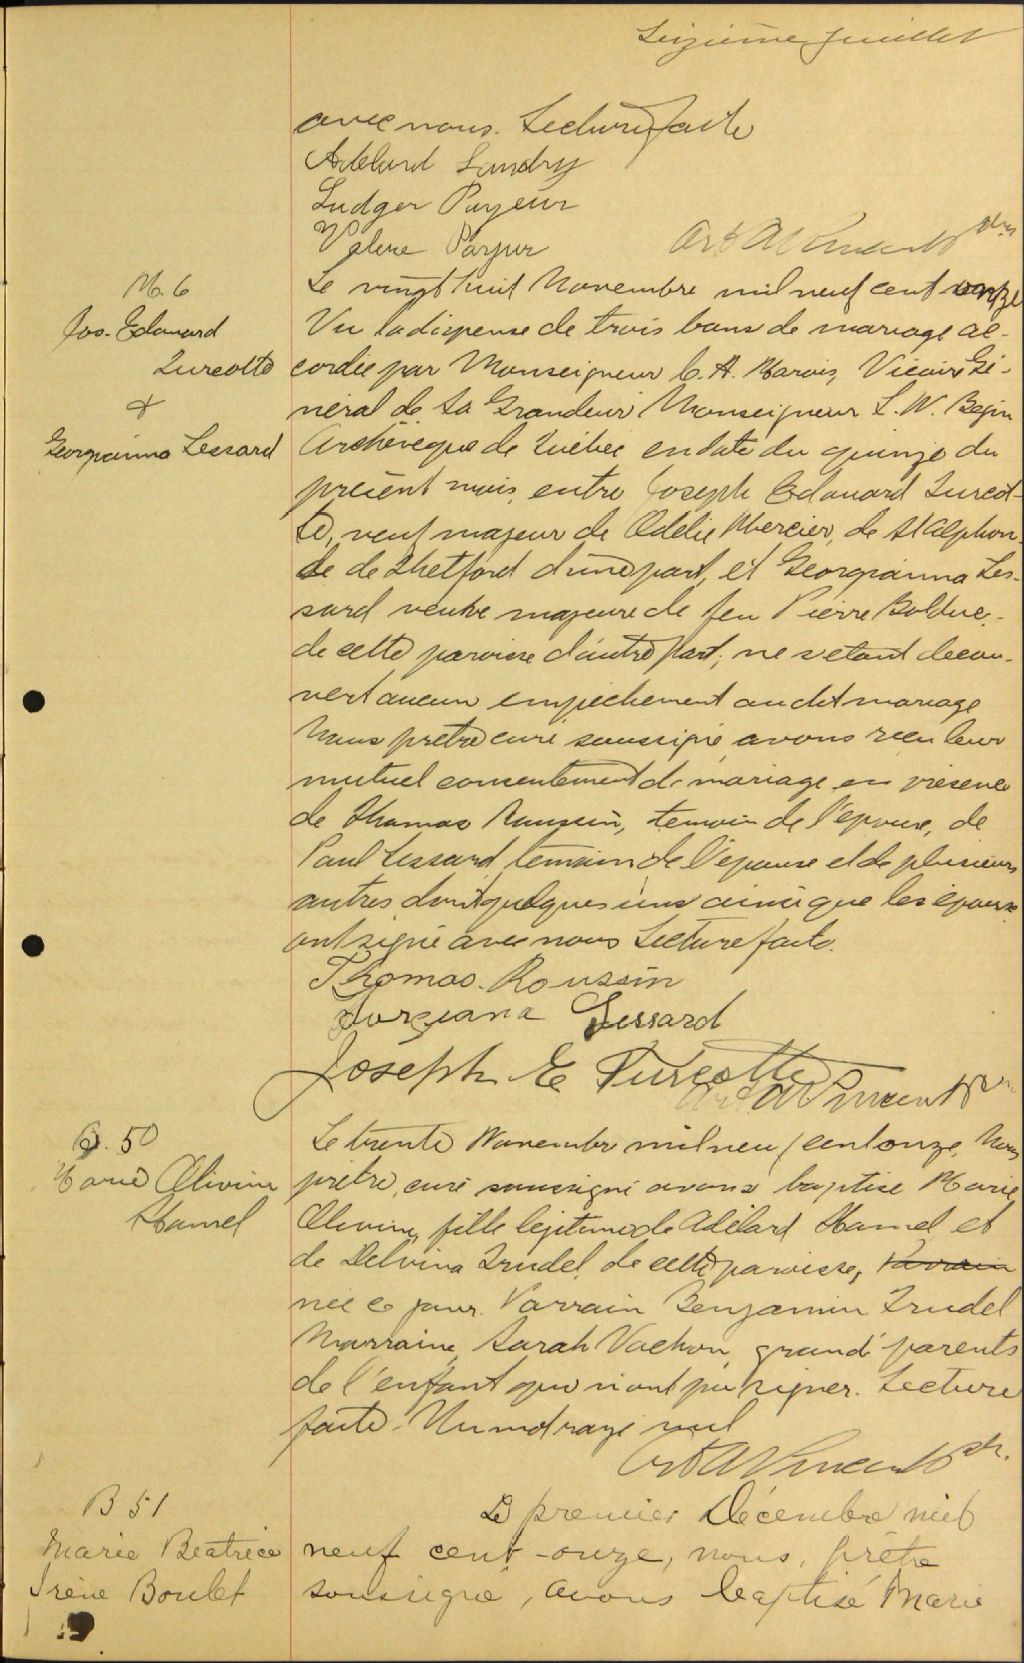 Seizième feuillet
avec nous. Lecture faite
Adelard Landry
Ludger Payeur
Valere Payeur
Art A Vincent Ptre
M. 6
Jos. Edouard
Turcotte
&
Georgianna Lessard
Le vingt huit Novembre mil neuf cent onze
Vu la dispense de trois bans de mariage ac-
cordée par Monseigneur C. A. Marois, Vicaire Gé-
néral de Sa Grandeur Monseigneur L. N. Begin
Archévêque de Québec en date du quinze du
présent mois, entre Joseph Edouard Turcot-
te, veuf majeur de Odélie Mercier, de St Alphon-
se de Thetford d'une part, et Georgianna Les-
sard veuve majeure de feu Pierre Bolduc,
de cette paroisse d'autre part; ne s'étant décou-
vert aucun empêchement au dit mariage
Nous prêtre curé soussigné avons reçu leur
mutuel consentement de mariage en présence
de Thomas Roussin, temoin de l'epoux, de
Paul Lessard, temoin de l'épouse et de plusieurs
autres dont quelques uns ainsi que les époux
ont signé avec nous Lecture faite.
Thomas. Roussin
Gorgiana Lessard
Joseph E Turcotte
Art A Vincent Ptr
B. 50
Marie Olivine
Hamel
Le trente Novembre mil neuf cent onze, Nous
prêtre, curé soussigné avons baptisé Marie,
Olivine, fille légitime de Adélard Hamel et
de Delvina Trudel, de cette paroisse, Parrain
née ce jour. Parrain Benjamin Trudel
Marraine, Sarah Vachon, grand' parents
de l'enfant qui n'ont pu signer. Lecture
faite. Un mot rayé nul
Art A Vincent Ptr.
B 51
Marie Beatrice
Irène Boulet
Le premier Décembre mil
neuf cent-onze, nous, prêtre
soussigné, avons baptisé Marie